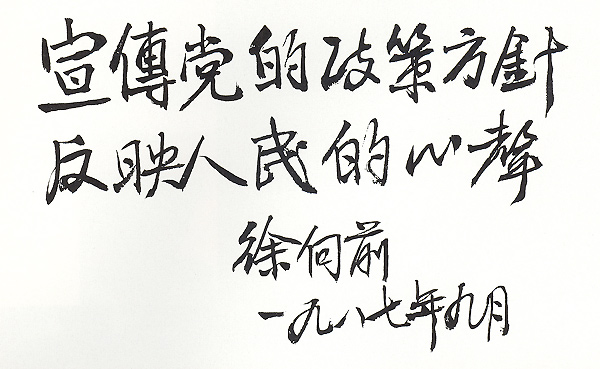 宣傳党的政策方針
反映人民的心聲
徐向前
一九八七年九月